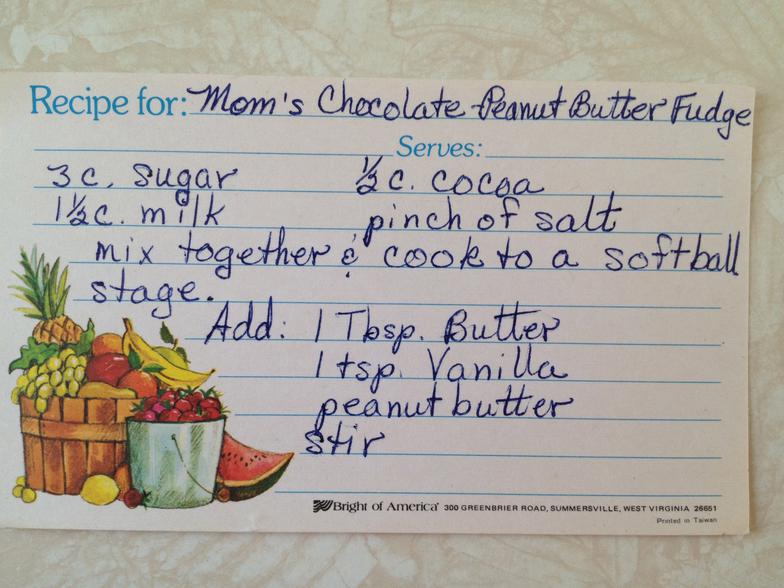 Recipe for: Mom's Chocolate Peanut Butter Fudge
Serves:
3 c. sugar ½ c. cocoa
1½ c. milk pinch of salt
mix together & cook to a softball
stage.
Add: 1 Tbsp. Butter
1 tsp. Vanilla
peanut butter
stir
Bright of America® 300 GREENBRIER ROAD, SUMMERSVILLE, WEST VIRGINIA 26651
Printed in Taiwan